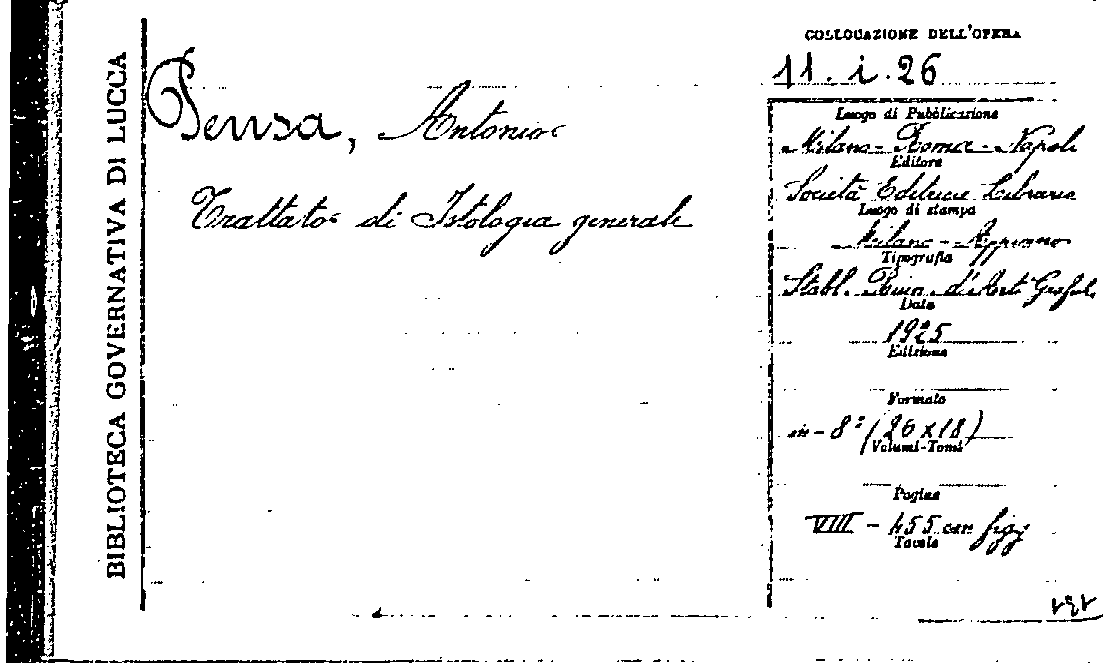 BIBLIOTECA GOVERNATIVA DI LUCCA
Pensa, Antonio
Trattato di Istologia generale
COLLOCAZIONE DELL'OPERA
11. i. 26
Luogo di Pubblicazione
Milano - Roma - Napoli
Editore
Società Editrice Libraria
Luogo di stampa
Milano - Appiano
Tipografia
Stabl. Riun. d'Arti Grafich
Data
1925
Edizione
Formato
in - 8° (26 x 18)
Volumi-Tomi
Pagine
VIII - 455 con figg
Tavole